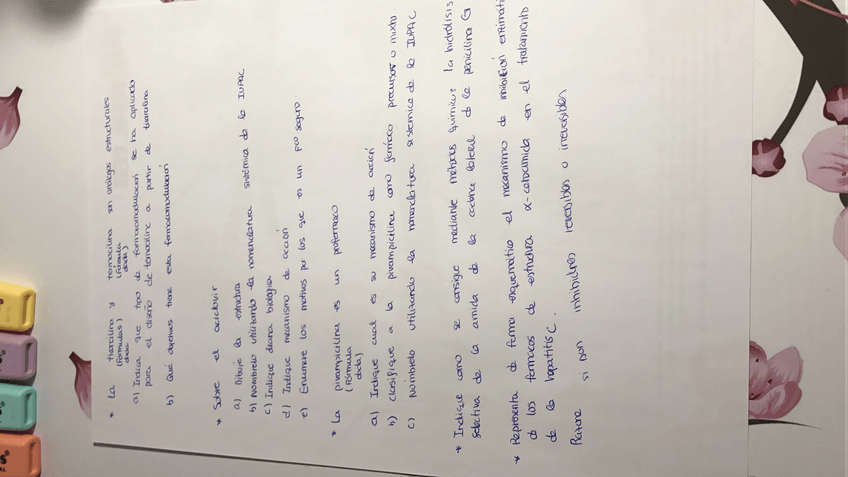 * La ticarcilina y temocilina son análogos estructurales
(fórmulas) (fórmula
dada dada)
a) Indica que tipo de farmacomodulación se ha aplicado
para el diseño de temocilina a partir de ticarcilina
b) Qué objetivos tiene esta farmacomodulación
* Sobre el aciclovir
a) Dibuje la estructura
b) Nómbrelo utilizando la nomenclatura sistémica de la IUPAC
c) Indique diana biológica
d) Indique mecanismo de acción
e) Enumere los motivos por los que es un pro seguro
* La pivampicilina es un profármaco
(Fórmula
dada)
a) Indique cual es su mecanismo de acción
b) Clasifique a la pivampicilina como fármaco precursor o mixto.
c) Nómbrelo utilizando la nomenclatura sistemica de la IUPAC
* Indique como se consigue mediante métodos químicos la hidrólisis
selectiva de la amida de la cadena lateral de la penicilina G
* Representa de forma esquemática el mecanismo de inhibición enzimáti
d los fármacos de estructura α-cetoamida en el tratamiento
de la hepatitis C.
Razone si son inhibidores reversibles o irreversibles